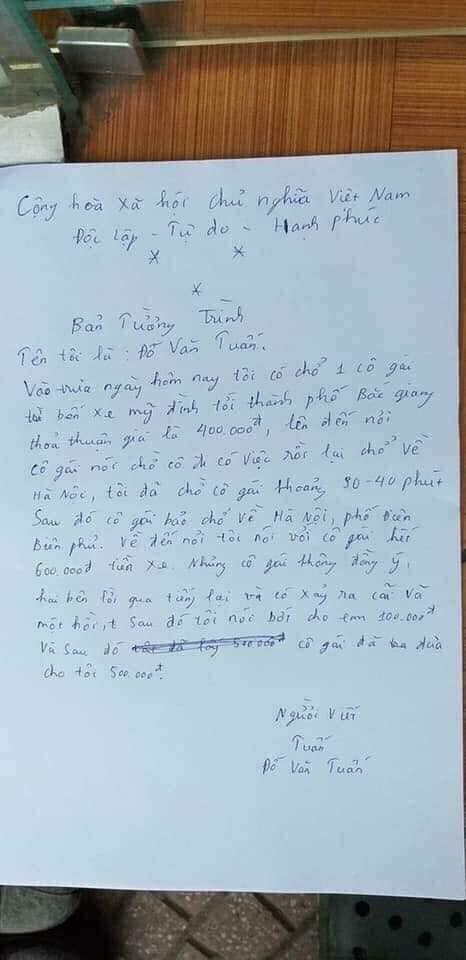 Cộng hoà xã hội chủ nghĩa Việt Nam
Độc lập - Tự do - Hạnh phúc
* *
*
Bản Tưởng Trình
Tên tôi là : Đỗ Văn Tuấn.
Vào trưa ngày hôm nay tôi có chở 1 cô gái
từ bến xe mỹ đình tới thành phố Bắc giang
thoả thuận giá là 400.000đ, lên đến nơi
cô gái nói chờ cô đi có việc rồi lại chở về
Hà Nộc, tôi đã chờ cô gái khoảng 30-40 phút
Sau đó cô gái bảo chở về Hà Nội, phố Điên
Biên phủ. Về đến nơi tôi nói với cô gái hết
600.000đ tiền xe. Nhưng cô gái không đồng ý,
hai bên lời qua tiếng lại và có xảy ra cãi vã
một hồi, Sau đó tôi nói bớt cho em 100.000đ
Và sau đó cô gái đã đưa
cho tôi 500.000đ.
Người Viết
Tuấn
Đỗ Văn Tuấn